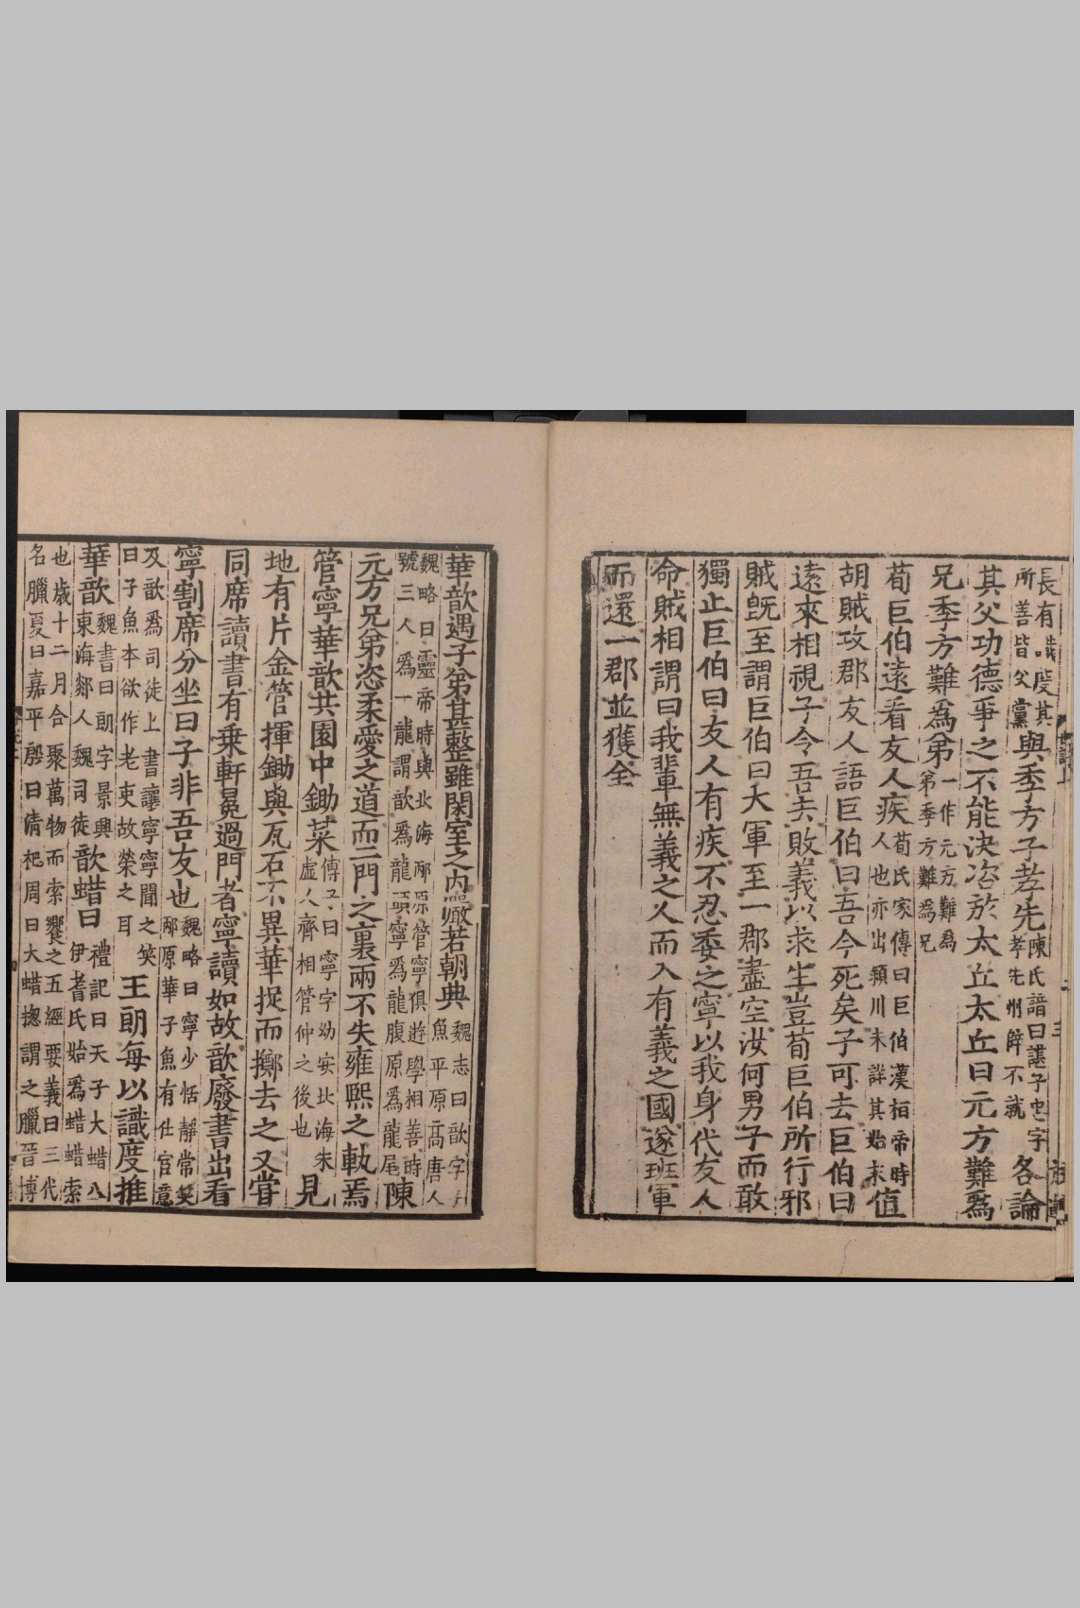 長有識度其
所善皆父黨
與季方子孝先
陳氏譜曰諶子忠字
孝先州辟不就
各論
其父功德爭之不能決咨於太丘太丘曰元方難爲
兄季方難爲弟
一作元方難爲
弟季方難爲兄
荀巨伯遠看友人疾
荀氏家傳曰巨伯漢桓帝時
人也亦出潁川未詳其始末
值
胡賊攻郡友人語巨伯曰吾今死矣子可去巨伯曰
遠來相視子令吾去敗義以求生豈荀巨伯所行邪
賊旣至謂巨伯曰大軍至一郡盡空汝何男子而敢
獨止巨伯曰友人有疾不忍委之寧以我身代友人
命賊相謂曰我輩無義之人而入有義之國遂班軍
而還一郡並獲全
華歆遇子弟甚整雖閑室之內嚴若朝典
魏志曰歆字子
魚平原高唐人
魏略曰靈帝時與北海邴原管寧俱遊學相善時
號三人爲一龍謂歆爲龍頭寧爲龍腹原爲龍尾
陳
元方兄弟恣柔愛之道而二門之裏兩不失雍熙之軌焉
管寧華歆共園中鋤菜
傅子曰寧字幼安北海朱
虛人齊相管仲之後也
見
地有片金管揮鋤與瓦石不異華捉而擲去之又嘗
同席讀書有乗軒冕過門者寧讀如故歆廢書出看
寧割席分坐曰子非吾友也
魏略曰寧少恬靜常笑
邴原華子魚有仕宦意
及歆爲司徒上書讓寧寧聞之笑
曰子魚本欲作老吏故榮之耳
王朗每以識度推
華歆
魏書曰朗字景興
東海郯人魏司徒
歆蜡曰
禮記曰天子大蜡八
伊耆氏始爲蜡蜡索
也歲十二月合聚萬物而索饗之五經要義曰三代
名臘夏曰嘉平殷曰清祀周曰大蜡揔謂之臘晉博